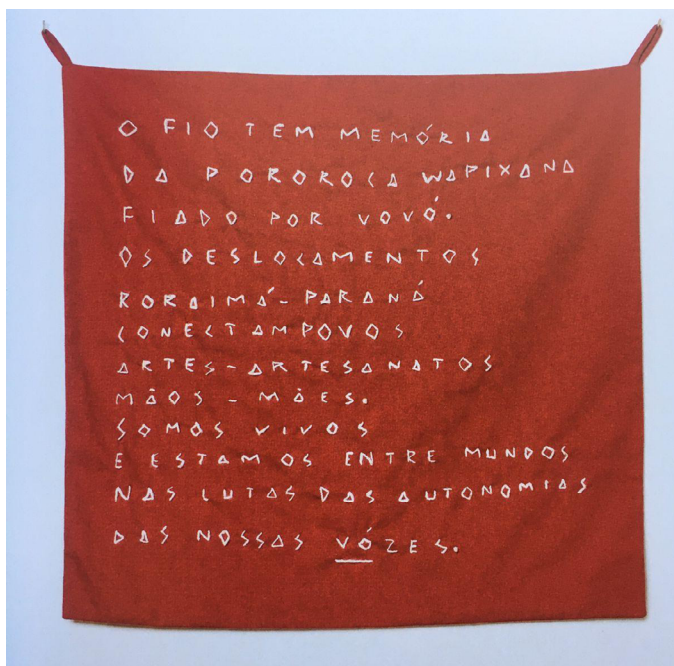 O FIO TEM MEMÓRIA
DA POROROCA WAPIXANA
FIADO POR VOVÓ.
OS DESLOCAMENTOS
RORAIMÁ-PARANÁ
CONECTAM POVOS
ARTES-ARTESANATOS
MÃOS - MÃES.
SOMOS VIVOS
E ESTAMOS ENTRE MUNDOS
NAS LUTAS DAS AUTONOMIAS
DAS NOSSAS VÓZES.